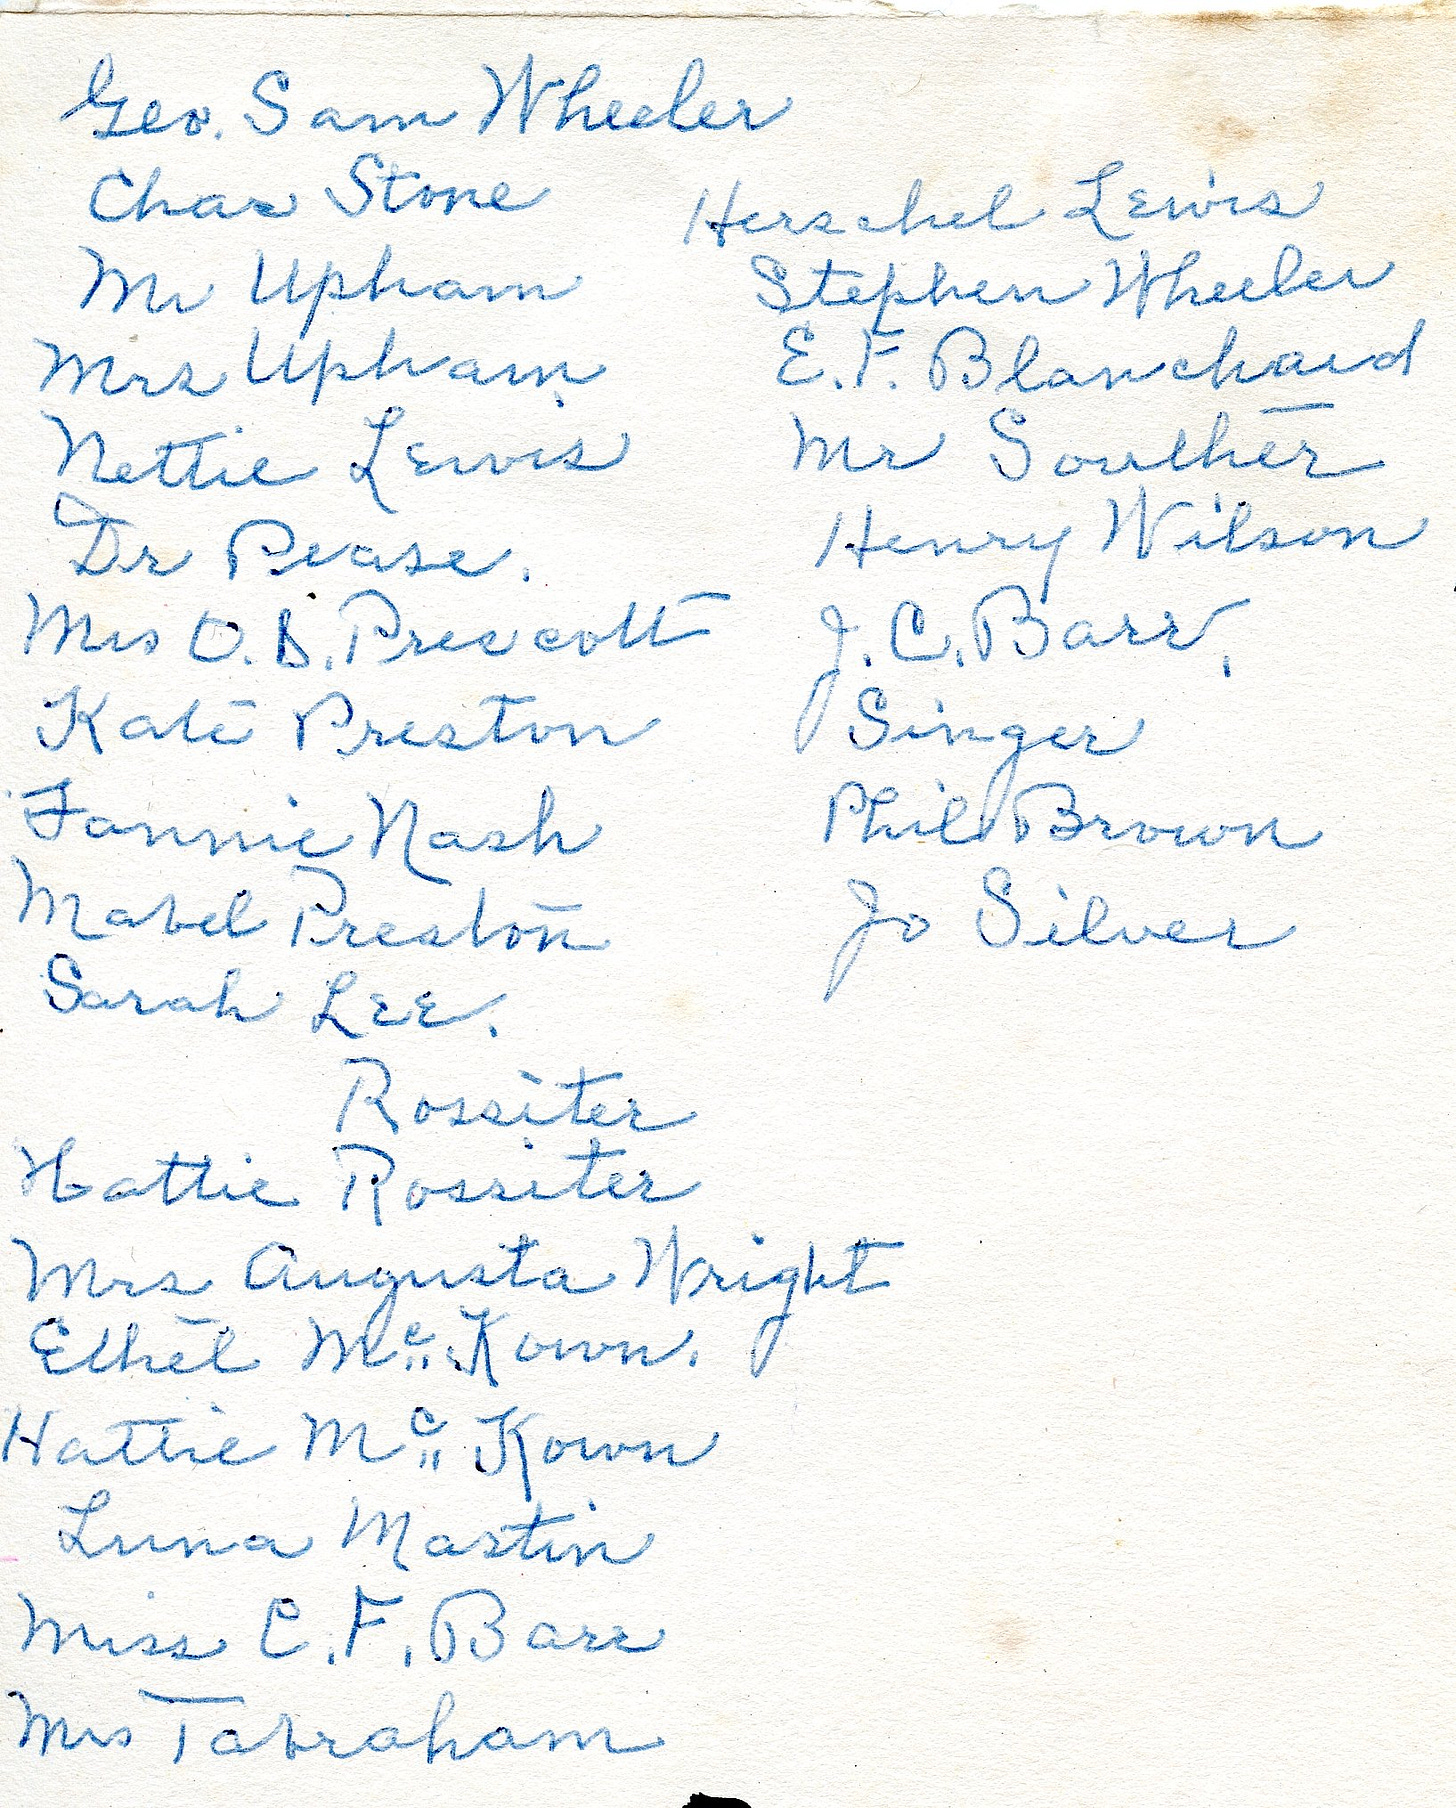 Geo. Sam Wheeler
Chas Stone
Mr Upham
Mrs Upham
Nettie Lewis
Dr Pease.
Mrs O. D. Prescott
Kate Preston
Fannie Nash
Mabel Preston
Sarah Lee.
Rossiter
Hattie Rossiter
Mrs Augusta Wright
Ethel Mc Kown.
Hattie Mc Kown
Luna Martin
Miss C. F. Barr
Mrs Tabraham
Herschel Lewis
Stephen Wheeler
E. F. Blanchard
Mr Souther
Henry Wilson
J. C. Barr,
Singer
Phil Brown
Jo Silver